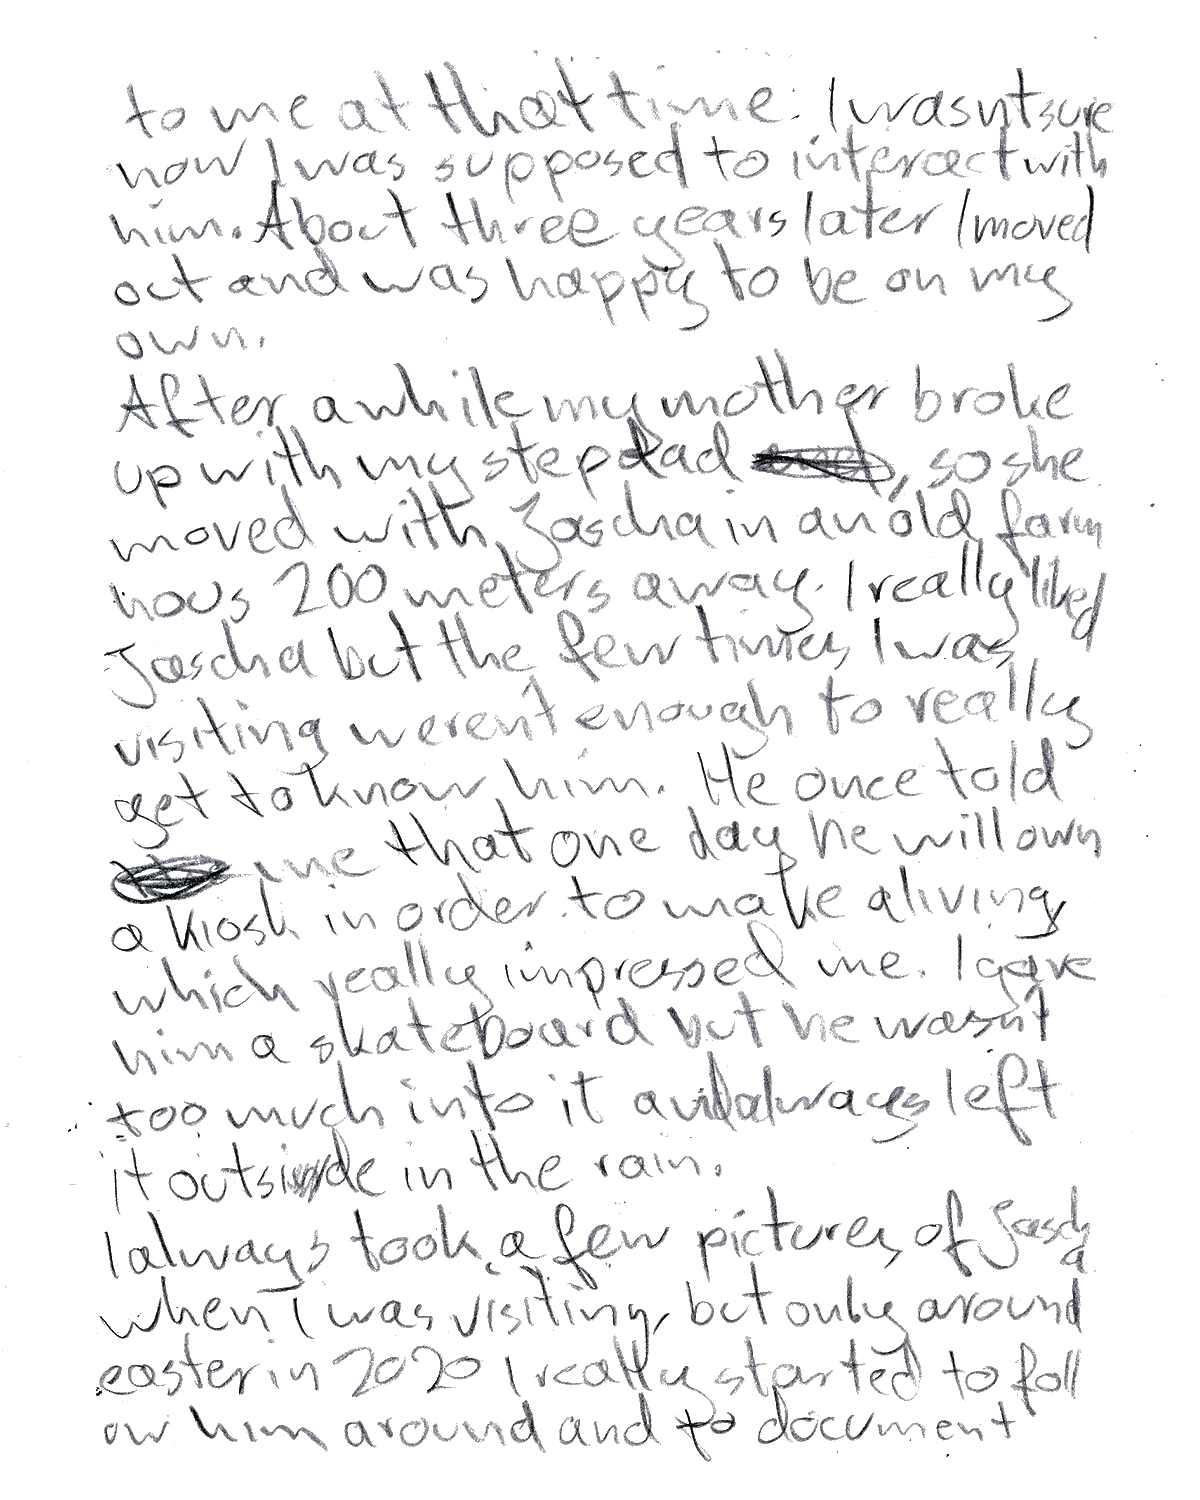 to me at that time. I wasn't sure
how I was supposed to interact with
him. About three years later I moved
out and was happy to be on my
own.
After a while my mother broke
up with my stepdad , so she
moved with Jascha in an old farm
hous 200 meters away. I really liked
Jascha but the few times I was
visiting weren't enough to really
get to know him. He once told
me that one day he will own
a kiosk in order to make a living
which really impressed me. I gave
him a skateboard but he wasn't
too much into it and always left
it outside in the rain.
I always took a few pictures of Jascha
when I was visiting, but only around
easter in 2020 I really started to foll
ow him around and to document